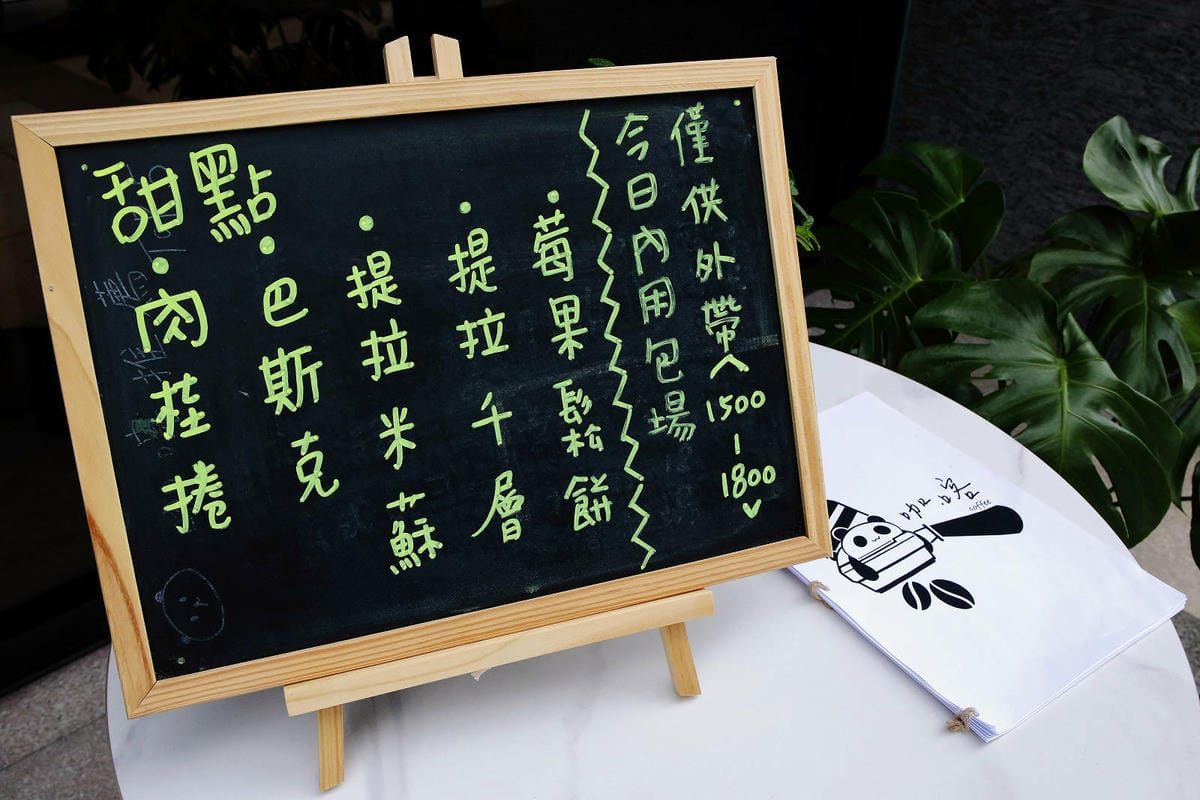 甜點
•肉桂捲
•巴斯克
•提拉米蘇
•提拉千層
•莓果鬆餅
今日內用包場
僅供外帶︿1500-1800﹀
coffee